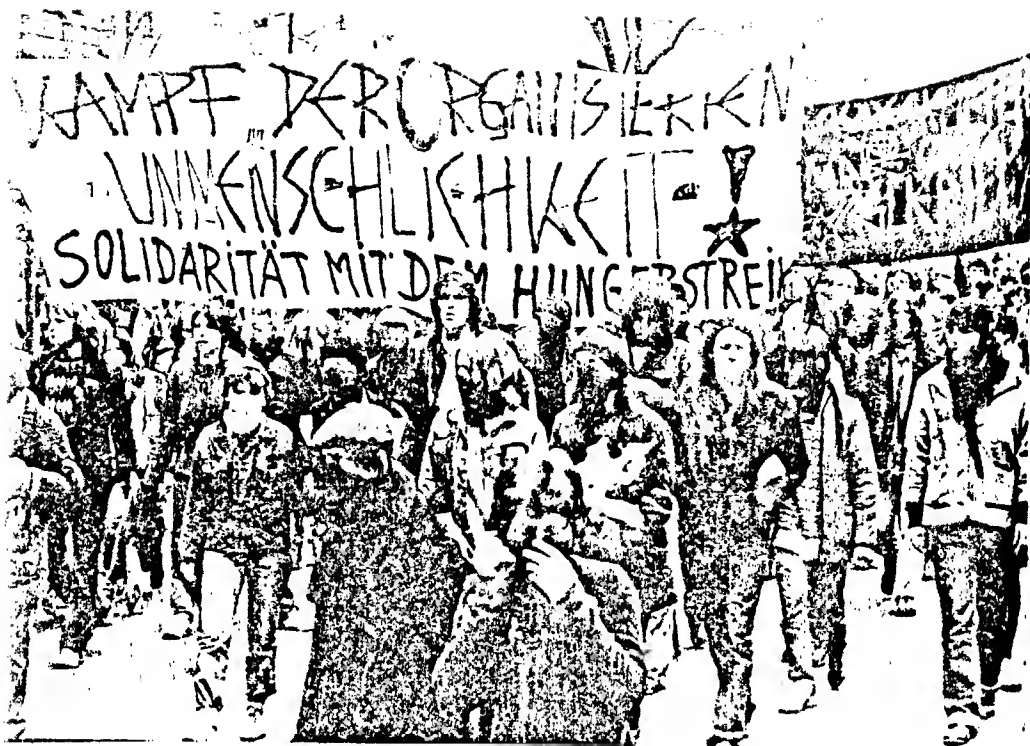 KAMPF DER ORGANISIERTEN
UNMENSCHLICHKEIT !
SOLIDARITÄT MIT DEM HUNGERSTREIK